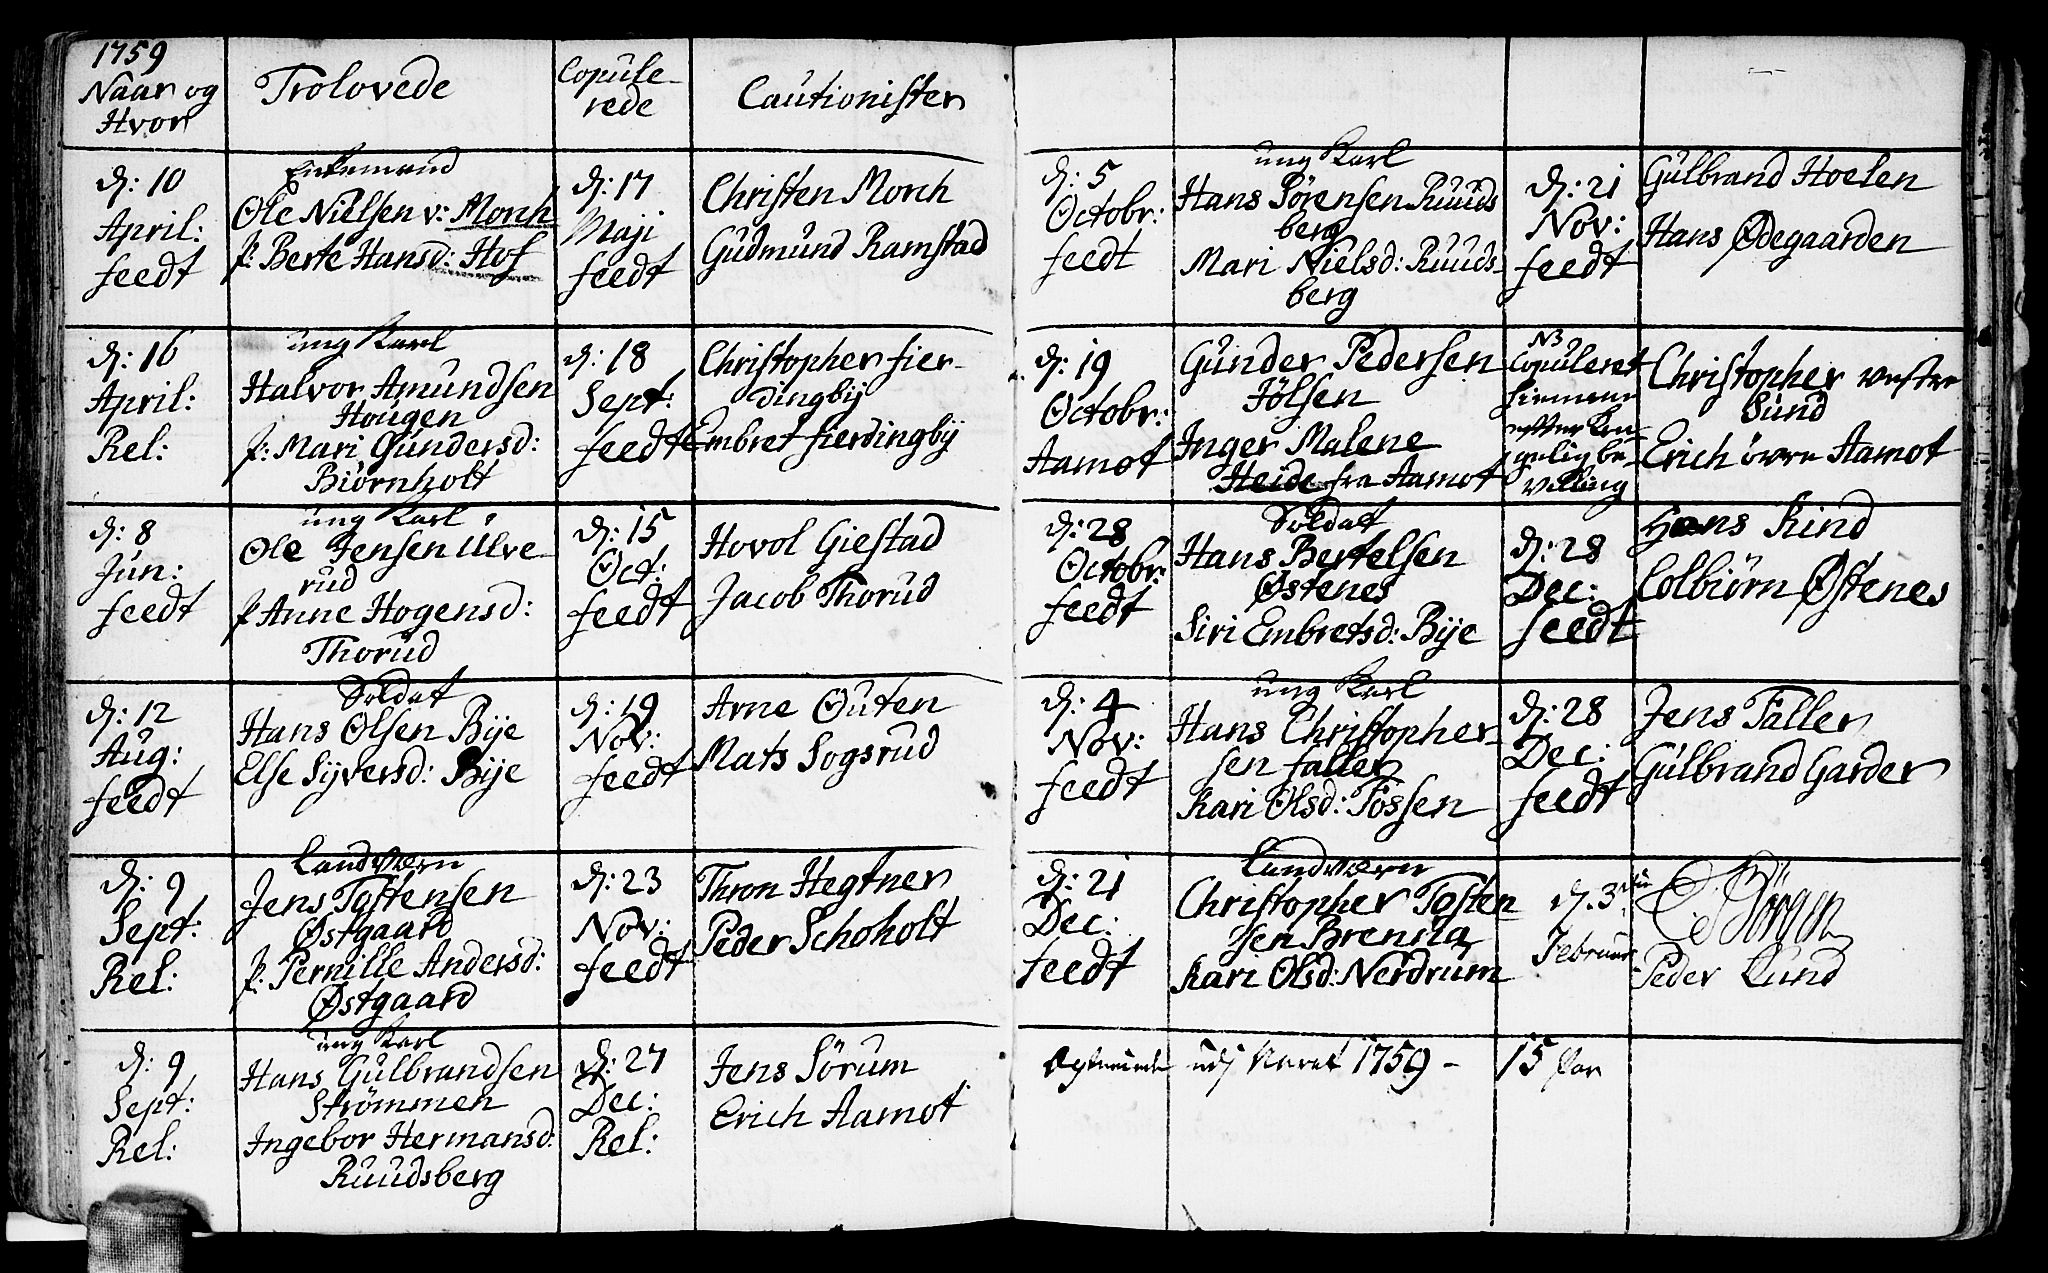 1759
Naar og
Hvor
Trolovede
Copule-
rede
Cautionister
d: 10
April:
feedt
Enkemand
Ole Nielsen v: Morch
p: Berte Hansd: Hof
d: 17
Maji
feedt
Christen Morch
Gudmund Ramstad
d: 16
April:
Rel:
ung Karl
Halvor Amundsen
Hougen
p: Mari Gundersd:
Biörnholt
d: 18
Sept:
feedt
Christopher fier-
dingbÿ
Embret fierdingbÿ
d: 8
Jun:
feedt
ung Karl
Ole Jensen Ulve-
rud
p: Anne Hogensd:
Thorud
d: 15
Oct:
feedt
Hovol Giestad
Jacob Thorud
d: 12
Aug:
feedt
Soldat
Hans Olsen Bÿe
Else Sÿversd: Bÿe
d: 19
Nov:
feedt
Arne Outen
Mats Sogsrud
d: 9
Sept:
Rel:
Landværn
Jens Tostensen
Østgaard
p: Pernille Andersd:
Østgaard
d: 23
Nov:
feedt
Thron Hegtner
Peder Schoholt
d: 9
Sept:
Rel:
ung Karl
Hans Gulbrandsen
Strömmen
Ingebor Hermansd:
Ruudsberg
d: 27
Dec:
Rel:
Jens Sörum
Erich Aamot
d: 5
Octobr:
feedt
ung Karl
Hans Sörensen Ruuds
berg
Mari Nielsd: Ruuds-
berg
d: 21
Nov:
feedt
Gulbrand Hoelen
Hans Ødegaarden
d: 19
Octobr:
Aamot
Gunder Pedersen
Jölsen
Inger Malene
Heide fra Aamot
NB
Copuleret
hiemme
efter Kon-
gelig be-
villing
Christopher vestre
Sund
Erich övre Aamot
d: 28
Octobr:
feedt
Soldat
Hans Bertelsen
Østenes
Siri Embretsd: Bÿe
d: 28
Dec:
feedt
Hans Rind
Colbiörn Østenes
d: 4
Nov:
feedt
ung Karl
Hans Christopher-
sen faller
Kari Olsd: Fossen
d: 28
Dec:
feedt
Jens Faller
Gulbrand Garder
d: 21
Dec:
feedt
Landværn
Christopher Tosten
sen Brenna
Kari Olsd: Nerdrum
d. 3
Februar
Peder Lund
udj Aaret 1759 -
15 Par